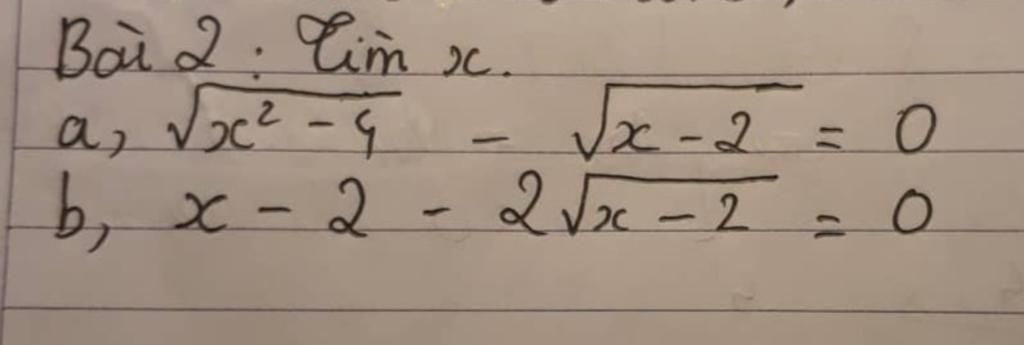 Bài 2 : Tìm x.
a, √(x² - 4) - √(x - 2) = 0
b, x - 2 - 2√(x - 2) = 0